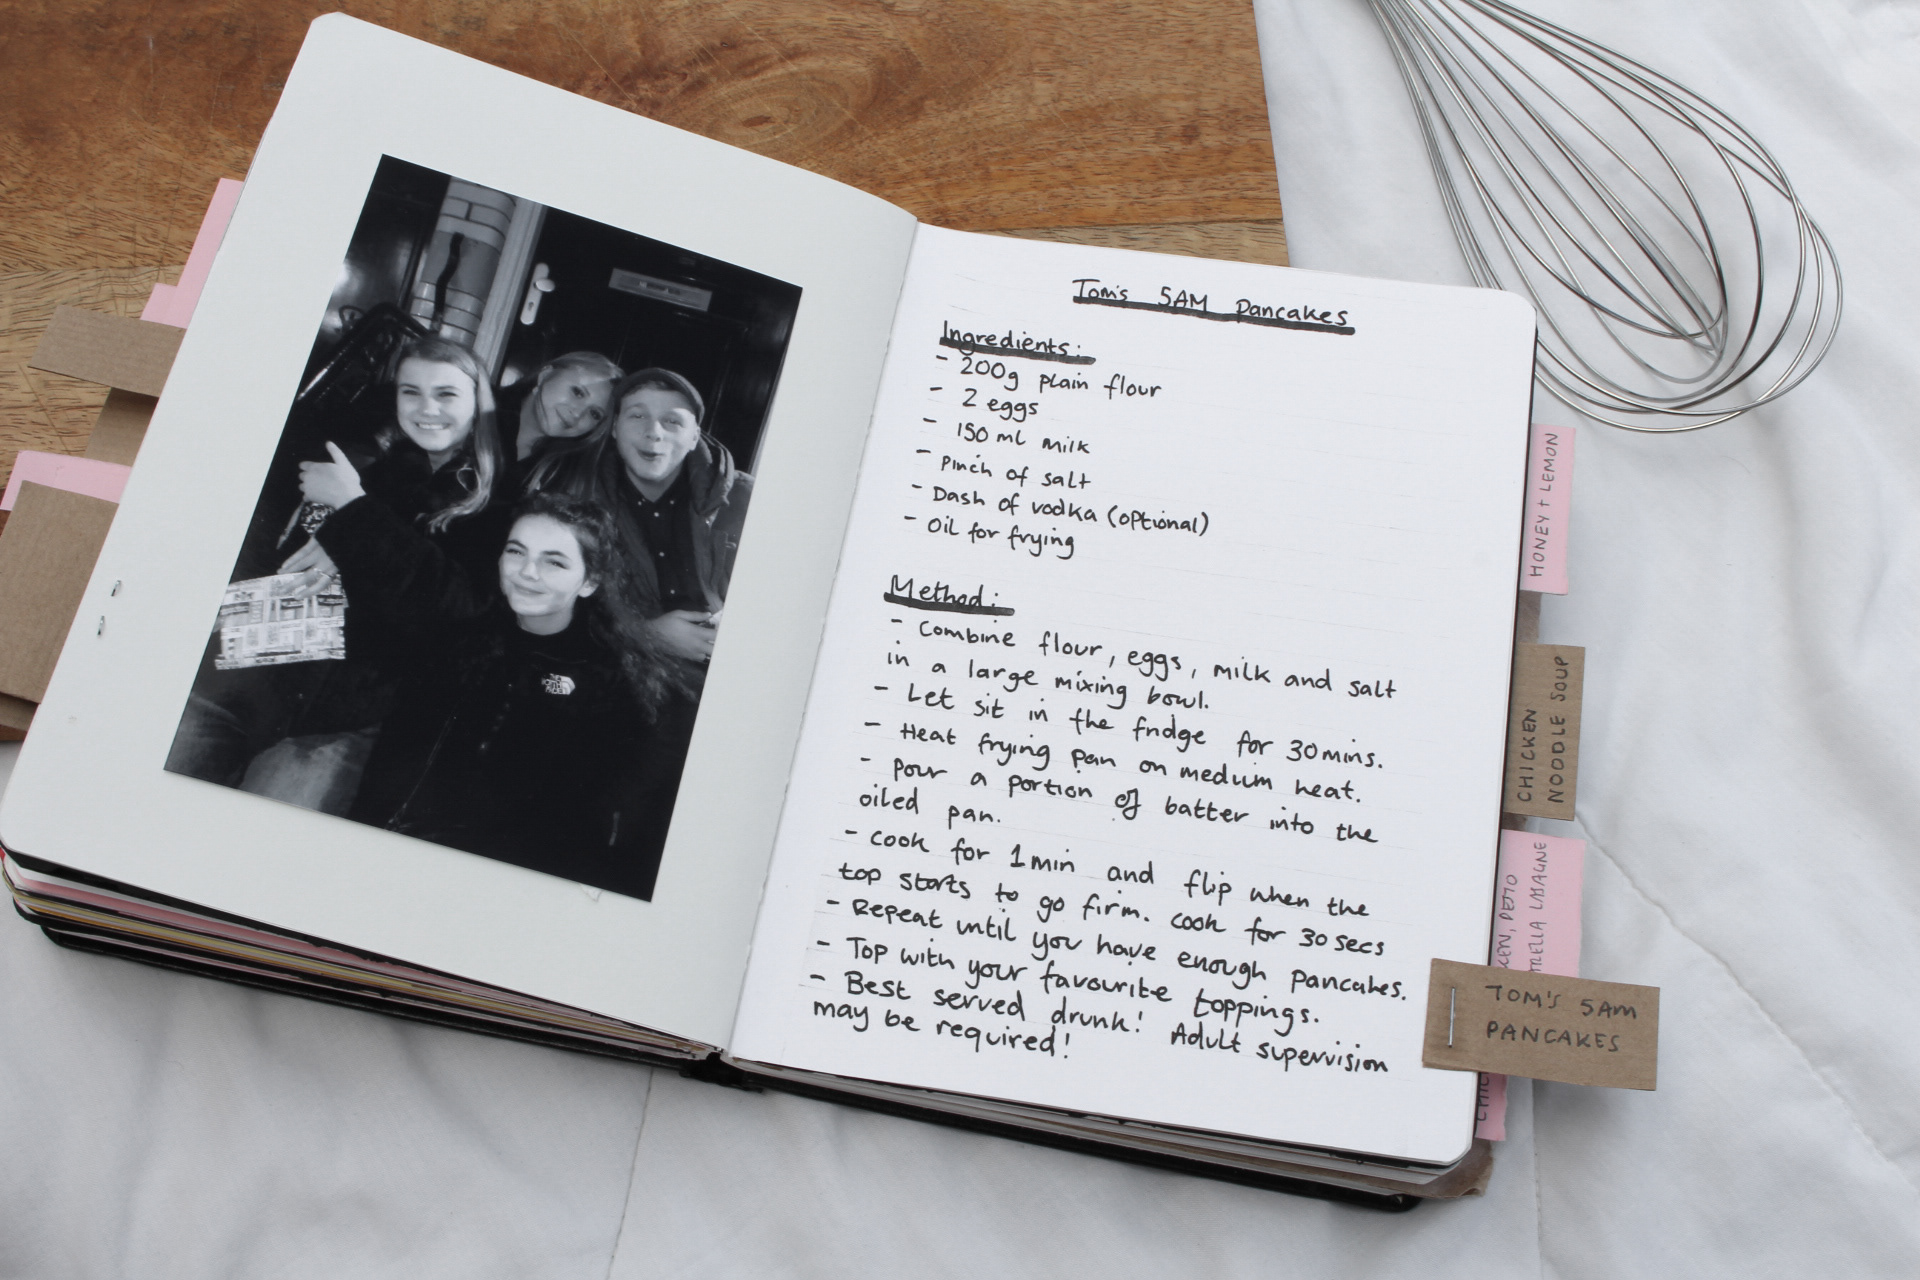 Tom's 5AM Pancakes
Ingredients:
- 200g plain flour
- 2 eggs
- 150ml milk
- Pinch of salt
- Dash of vodka (optional)
- Oil for frying
Method:
- Combine flour, eggs, milk and salt
in a large mixing bowl.
- Let sit in the fridge for 30mins.
- Heat frying pan on medium heat.
- Pour a portion of batter into the
oiled pan.
- Cook for 1min and flip when the
top starts to go firm. Cook for 30secs
- Repeat until you have enough pancakes.
- Top with your favourite toppings.
- Best served drunk! Adult supervision
may be required!
HONEY + LEMON
CHICKEN
NOODLE SOUP
PESTO
TOM'S 5AM
PANCAKES
THE
NORTH
FACE